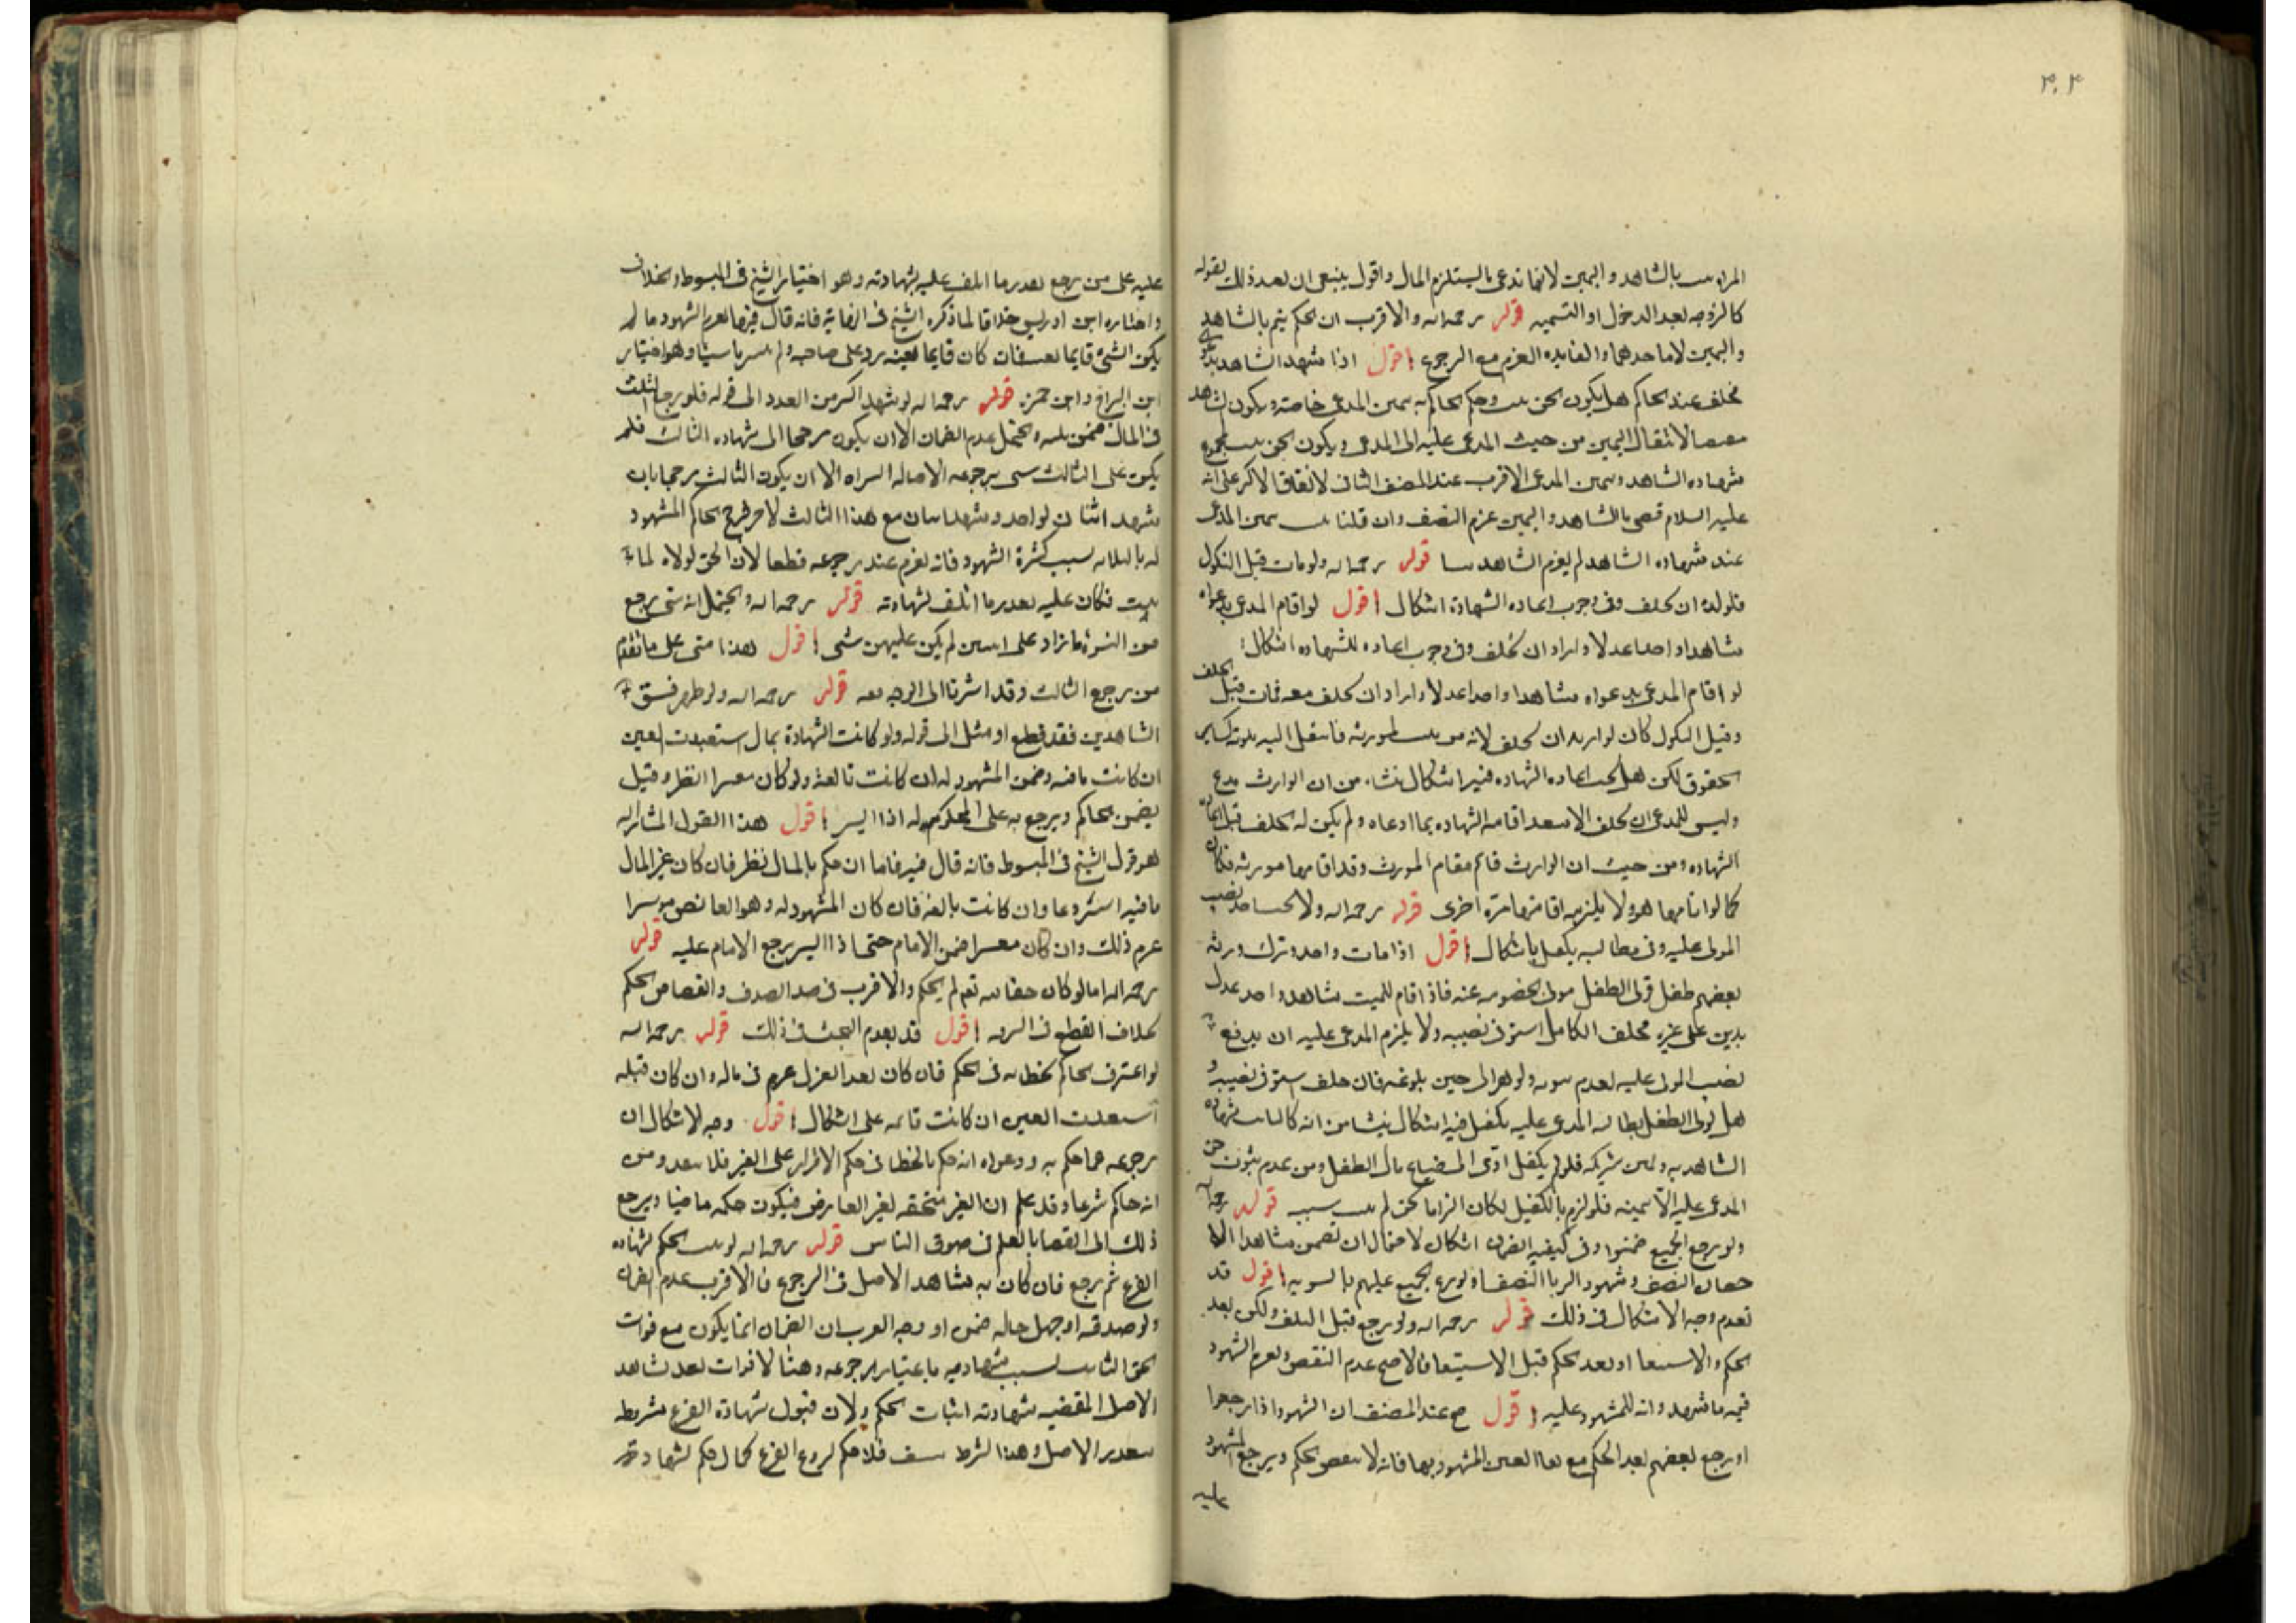 ٣٠٢
المراه بالشاهد واليمين لانها تدعى ما يستلزم المال واقول ينبغى ان بعد ذلك بقوله
كالزوجه بعد الدخول او التسميه قوله رحمه الله والاقرب ان الحكم يتم بالشاهد
واليمين لا باحدهما والفايده الغرم مع الرجوع اقول اذا شهد الشاهد
عند الحاكم هل يكون الحق وحكم الحاكم به بيمين المدعى خاصه ويكون الشاهد
لانتقال اليمين من حيث المدعى عليه الى المدعى ويكون الحق بمجموع
شهاده الشاهد ويمين المدعى الاقرب عند المصنف الثانى لاتفاقا الاكثر على انه
عليه السلام قضى بالشاهد واليمين غرم النصف وان قلنا يمين المدعى
عند شهاده الشاهد لم يغرم الشاهد قوله رحمه الله ولو مات قبل النكول
فلولده ان يحلف وفى وجوب اعاده الشهادة اشكال اقول لو اقام المدعى بدعواه
شاهدا واحدا عدلا واراد ان يحلف وفى وجوب اعاده الشهاده اشكال
لو اقام المدعى بدعواه شاهدا واحدا عدلا واراد ان يحلف معه فمات قبل الحلف
وقبل النكول كان لوارثه ان يحلف لانه لمورثه فانتقل اليه بموته كساير
الحقوق لكن هل يجب اعاده الشهاده فيه اشكال ينشاء من ان الوارث مدع
وليس للمدعى ان يحلف الا بعد اقامه الشهاده بما ادعاه ولم يكن له الحلف قبل اقامة
الشهاده ومن حيث ان الوارث قائم مقام المورث وقد اقامها مورثه فكان
كما لو اقامها هو ولا يلزمه اقامتها مرة اخرى قوله رحمه الله ولا نصيب
المولى عليه وفى مطالبه بكفيل اشكال اقول اذا مات واحد وترك ورثه
بعضهم طفل فولى الطفل مولى الخصومه عنه فاذا اقام للميت شاهد واحد عدل
بدين على غيره فحلف الكامل استوفى نصيبه ولا يلزم المدعى عليه ان يدفع
نصيب المولى عليه لعدم ثبوته ولو اقر الى حين بلوغه فان حلف استوفى نصيبه و
هل لولى الطفل مطالبه المدعى عليه بكفيل فيه اشكال ينشا من انه كالثابت بشهادة
الشاهد به ويمين شريكه فلو لم يكفل ادى الى ضياع مال الطفل ومن عدم ثبوت حق
المدعى عليه الا بيمينه فلو لزم بالكفيل لكان الزاما بحق لم يثبت سببه قوله رحمه الله
ولو رجع الجميع ضمنوا وفى كيفيه الضمان اشكال لاحتمال ان تضمن شاهدا الا
حصان النصف وشهود الزنا النصف او يوزع الجميع عليهم بالسويه اقول قد
تقدم وجه الاشكال فى ذلك قوله رحمه الله ولو رجع قبل التلف ولكن بعد
الحكم والاستيفا او بعد الحكم قبل الاستيفا فالاصح عدم النقض وتغرم الشهود
قيمه ما شهد وانه للمشهود عليه اقول صح عند المصنف ان الشهود اذا رجعوا
او رجع بعضهم بعد الحكم مع بقا العين المشهود بها فانه لا ينقض الحكم ويرجع المشهود
عليه
عليه على من رجع بقدر ما اتلف عليه بشهادته وهو اختيار الشيخ فى المبسوط والخلاف
واختاره ابن ادريس خلافا لما ذكره الشيخ فى النهاية فانه قال فيها تغرم الشهود ما لم
يكن الشئ قايما بعينه فان كان قايما بعينه يرد على صاحبه ولم يغرما شيئا وهو اختيار
ابن البراج وابن حمزه قوله رحمه الله لو شهد اكثر من العدد الى قوله فلو رجع الثلث
فى المال ضمن ثلثه ويحتمل عدم الضمان الا ان يكون مرجحا الى شهاده الثالث فلم
يكن على الثالث شى برجوعه لاصاله البراه الا ان يكون الثالث مرجحا بان
شهد اثنان لواحد وشهد اثنان مع هذا الثالث لاخر فرجح الحاكم المشهود
له بالثلاثه بسبب كثرة الشهود فانه يغرم عند رجوعه قطعا لان الحق لولاه لما
يثبت فكان عليه بقدر ما اتلف بشهادته قوله رحمه الله ويحتمل انه متى رجع
من النسوة ما زاد على اثنتين لم يكن عليهن شى اقول هذا متى على ما تقدم
من رجوع الثالث وقد اشرنا الى الوجه معه قوله رحمه الله ولو ظهر فسق
الشاهدين فقد قطع او مثل الى قوله ولو كانت الشهادة بمال استعيدت العين
ان كانت باقيه وضمن المشهود له ان كانت تالفة ولو كان معسرا انظر وقيل
يضمن الحاكم ويرجع به على المحكوم له اذا ايسر اقول هذا القول المشار اليه
هو قول الشيخ فى المبسوط فانه قال فيه فاما ان حكم بالمال نظر فان كان عين المال
باقيه استردها وان كانت تالفه فان كان المشهود له وهو القابض موسرا
غرم ذلك وان كان معسرا ضمن الامام حتى اذا ايسر يرجع الامام عليه قوله
رحمه الله اما لو كان حقا لله تعم لم يحكم والاقرب فى حد القذف والقصاص الحكم
بخلاف القطع فى السرقه اقول قد تقدم البحث فى ذلك قوله رحمه الله
لو اعترف الحاكم بخطائه فى الحكم فان كان بعد العزل غرم فى ماله وان كان قبله
استعيدت العين ان كانت قائمه على اشكال اقول وجه الاشكال ان
رجوعه عما حكم به ودعواه انه حكم بالخطا فى حكم الاقرار على الغير فلا ينفذ ومن
انه حاكم شرعا وقد علم ان الغير مستحقه لغير القابض فيكون حكمه ماضيا ويرجع
ذلك الى القضا بالعلم فى حقوق الناس قوله رحمه الله لو ثبت الحكم بشهاده
الفرع ثم رجع فان كان به شاهد الاصل فى الرجوع فالاقرب عدم الضمان
ولو صدقه او جهل حاله ضمن او وجه القرب ان الضمان انما يكون مع فوات
الحق الثابت بسبب شهادتيه باعتبار رجوعه وهنا لا فوات بعد شاهد
الاصل المقضيه شهادته اثبات الحكم ولان قبول شهادة الفرع مشروطه
بتعذر الاصل وهذا الشرط فلا حكم لروع الفرع كما لا حكم لشهادته